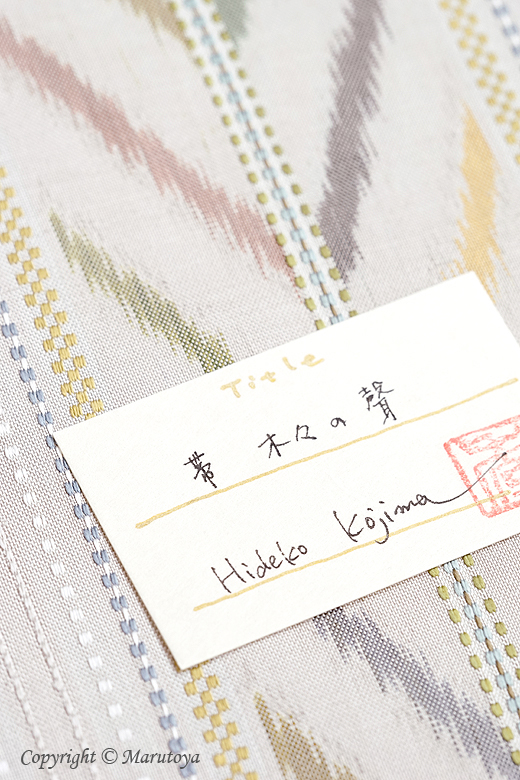 Title
帯 木々の聲
Hideko Kojima
Copyright © Marutoya